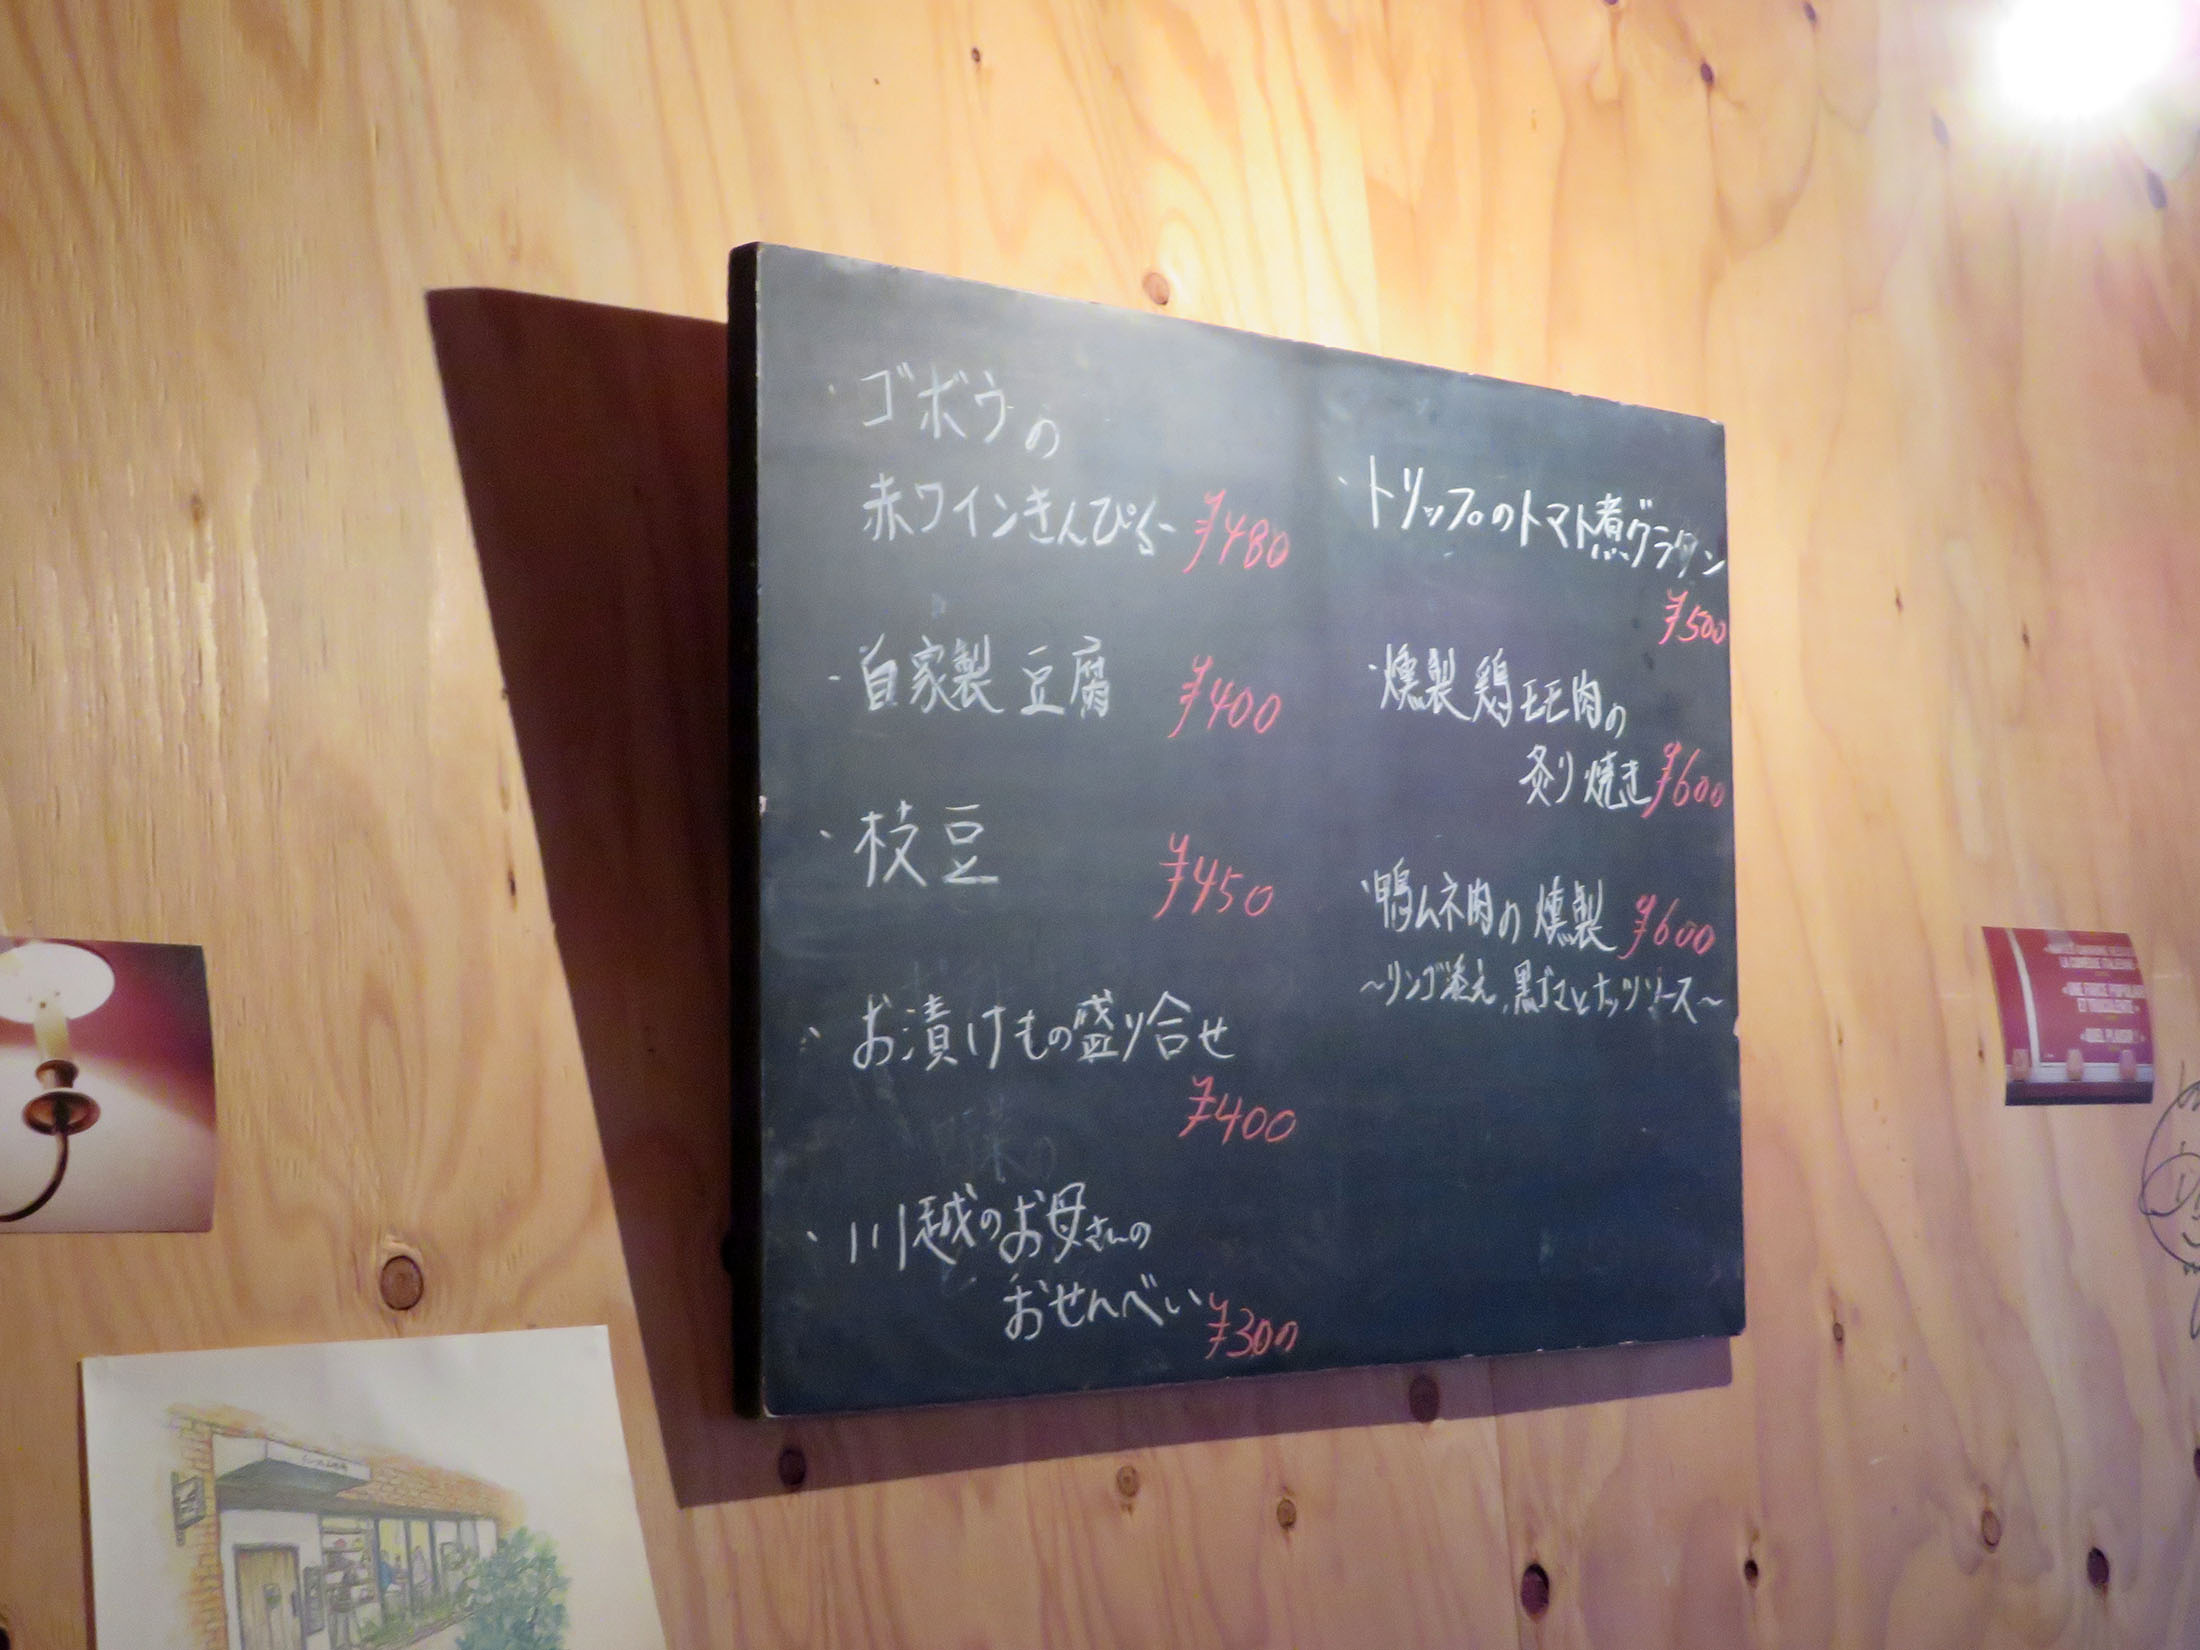 ・ゴボウの
赤ワインきんぴら ¥480
・自家製豆腐 ¥400
・枝豆 ¥450
・お漬けもの盛り合せ
¥400
・川越のお母さんの
おせんべい ¥300
・トリップのトマト煮グラタン
¥500
・燻製鶏モモ肉の
炙り焼き ¥600
・鴨ムネ肉の燻製 ¥600
～リンゴ添え、黒ゴマとナッツソース～
LA COMÉDIE ITALIENNE
«UNE FARCE POPULAIRE
ET TRUCULENTE»
«QUEL PLAISIR!»